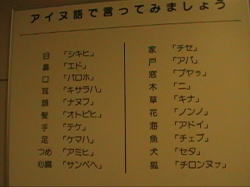 アイヌ語で言ってみましょう
目 「シキヒ」
鼻 「エド」
口 「パロホ」
耳 「キサラハ」
顔 「ナヌフ」
髪 「オトピヒ」
手 「テケ」
足 「ケマハ」
つめ 「アミヒ」
心臓 「サンペヘ」
家 「チセ」
戸 「アパ」
窓 「プヤㇻ」
木 「ニ」
草 「キナ」
花 「ノンノ」
海 「アドイ」
魚 「チェプ」
犬 「セタ」
狐 「チロンヌㇷ゚」